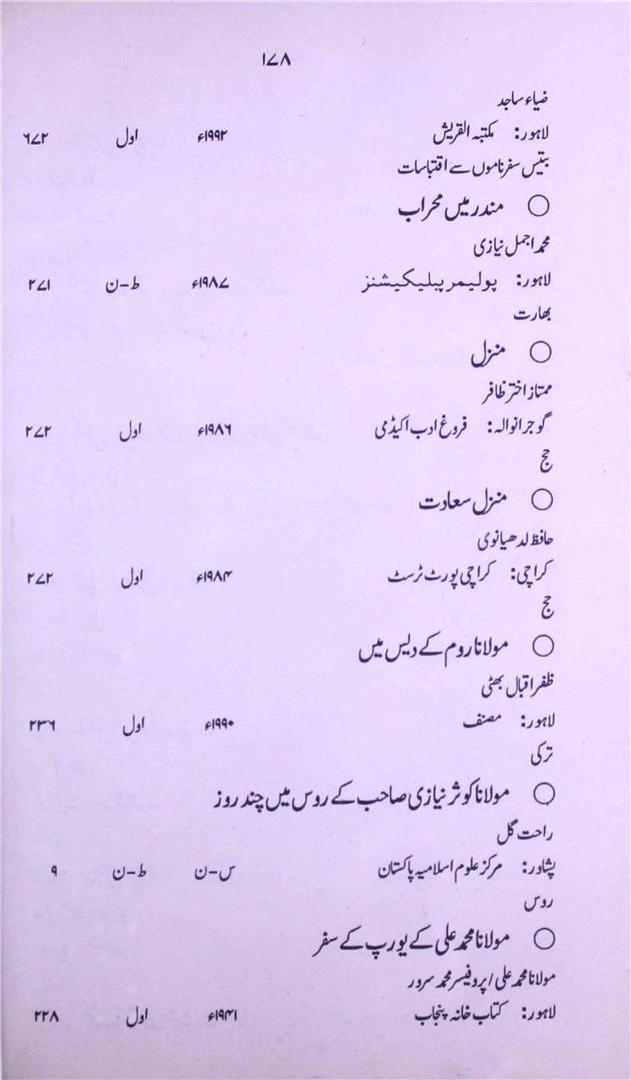 ۱۷۸
ضیاء ساجد
لاہور: مکتبہ القریش ۱۹۹۲ء اول ۶۷۲
بتیس سفرناموں سے اقتباسات
○ مندر میں محراب
محمد اجمل نیازی
لاہور: پولیمر پبلیکیشنز ۱۹۸۷ء ط-ن ۲۷۱
بھارت
○ منزل
ممتاز اختر ظافر
گوجرانوالہ: فروغ ادب اکیڈمی ۱۹۸۶ء اول ۲۷۲
حج
○ منزل سعادت
حافظ لدھیانوی
کراچی: کراچی پورٹ ٹرسٹ ۱۹۸۴ء اول ۲۷۲
حج
○ مولانا روم کے دیس میں
ظفر اقبال بھٹی
لاہور: مصنف ۱۹۹۰ء اول ۲۳۶
ترکی
○ مولانا کوثر نیازی صاحب کے روس میں چند روز
راحت گل
پشاور: مرکز علوم اسلامیہ پاکستان س-ن ط-ن ۹
روس
○ مولانا محمد علی کے یورپ کے سفر
مولانا محمد علی / پروفیسر محمد سرور
لاہور: کتاب خانہ پنجاب ۱۹۴۱ء اول ۲۲۸